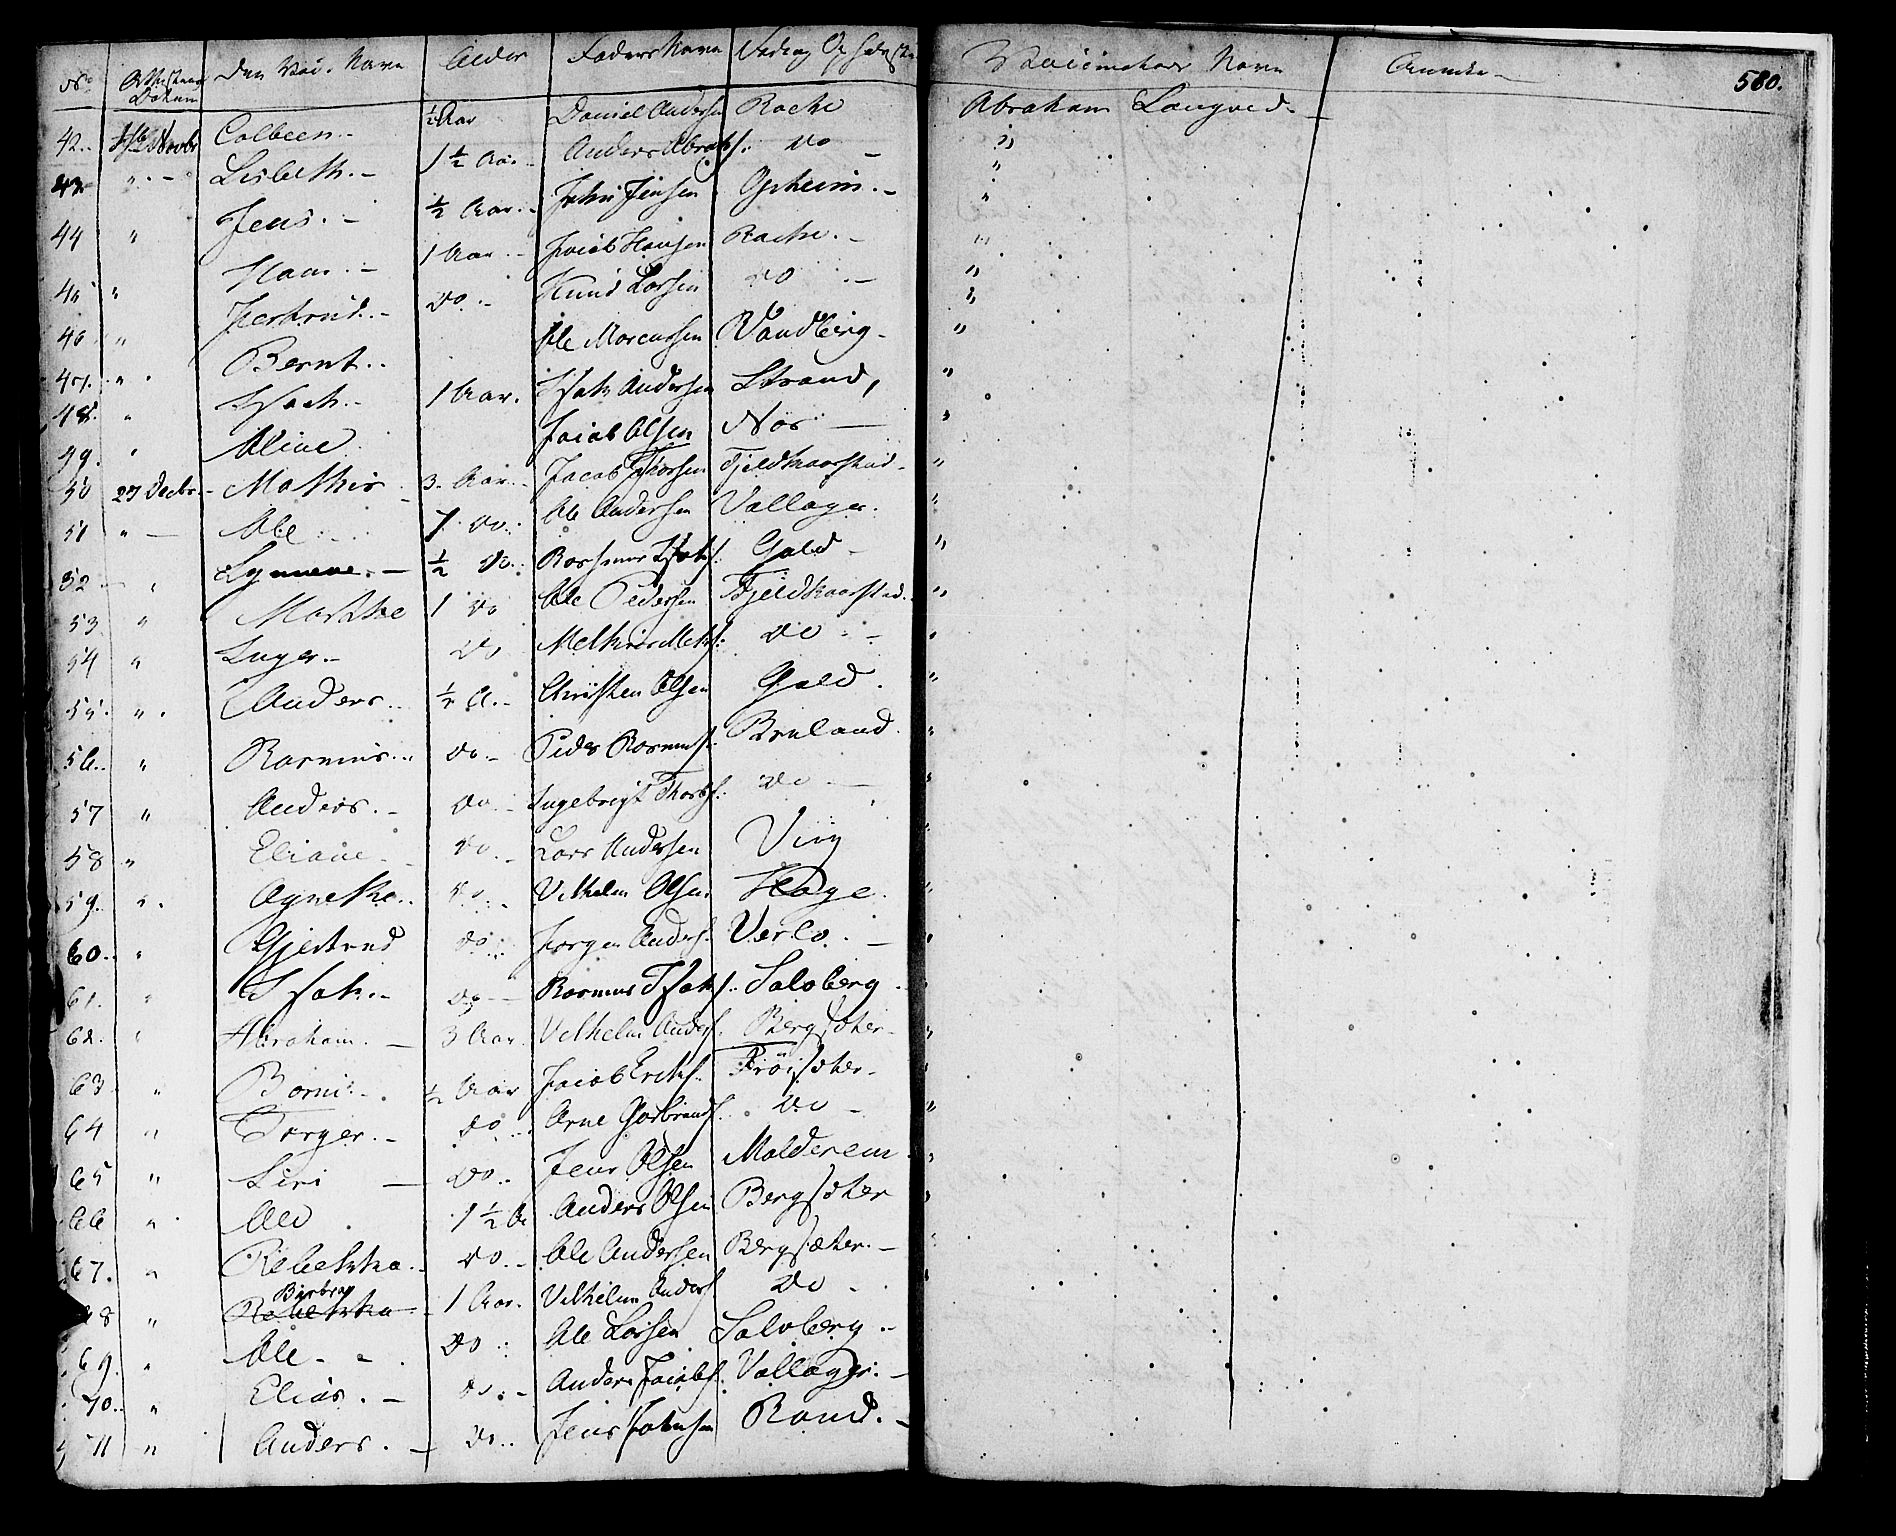 No Attestens Datum Den Vac. Navn Alder Faders Navn Vedkog Opholdsste Vaccinateur Navn Anmk. 580.
42. Novbr Colbeen ½ Aar Daniel Andersen Rache Abraham Langved
43 " Lisbeth 1½ Aar Anders Abrahs: do "
44 " Jens ½ Aar John Jensen Opheim "
Hans 1 Aar Jacob Hansen Rache "
45 " Jertrud do Knud Larsen do "
46 " Bernt Ole Marcussen Vandberg "
47 " Isach 1 Aar Isak Andersen Strand "
48 "
49 " Aline Jacob Olsen Nos "
50 27 Decbr Mathis 3 Aar Jacob Thorsen Fjeldkaarstad "
51 " Ole 7 do Ole Andersen Vollager "
52 " Synneve ½ do Rasmus Isaks: Gald "
53 " Marthe 1 do Ole Pedersen Fjeldkaarstad "
54 " Inger do Melkior Melks: do "
55 " Anders ½ A. Christen Olsen Gald "
56 " Rasmus do Peder Rasmuss: Bruland "
57 " Anders do Ingebrigt Thorbs: do
58 " Eliane do Lars Andersen Viig "
59 " Agnethe do Vilhelm Olsen Hage "
60 " Gjertrud do Jørgen Anders: Verlo "
61 " Isak do Rasmus Isaks: Solvberg "
62 " Abraham 3 Aar Vilhelm Anders: Bergsæter "
63 " Borni ½ Aar Jacob Eriks: Frøisæter "
64 " Torger do Arne Gulbrands: do "
65 " Siri do Jens Olsen Molderem "
66 " Ole 1½ A Anders Olsen Bergsæter "
67 " Rebekka do Ole Andersen Bergsæter "
68 " Rebekka Birbra 1 Aar Vilhelm Anders: do
69 " Ole do Ole Larsen Solvberg
70 " Elias do Anders Jacobs: Vollager
71 " Anders do Jens Johnsen Rand